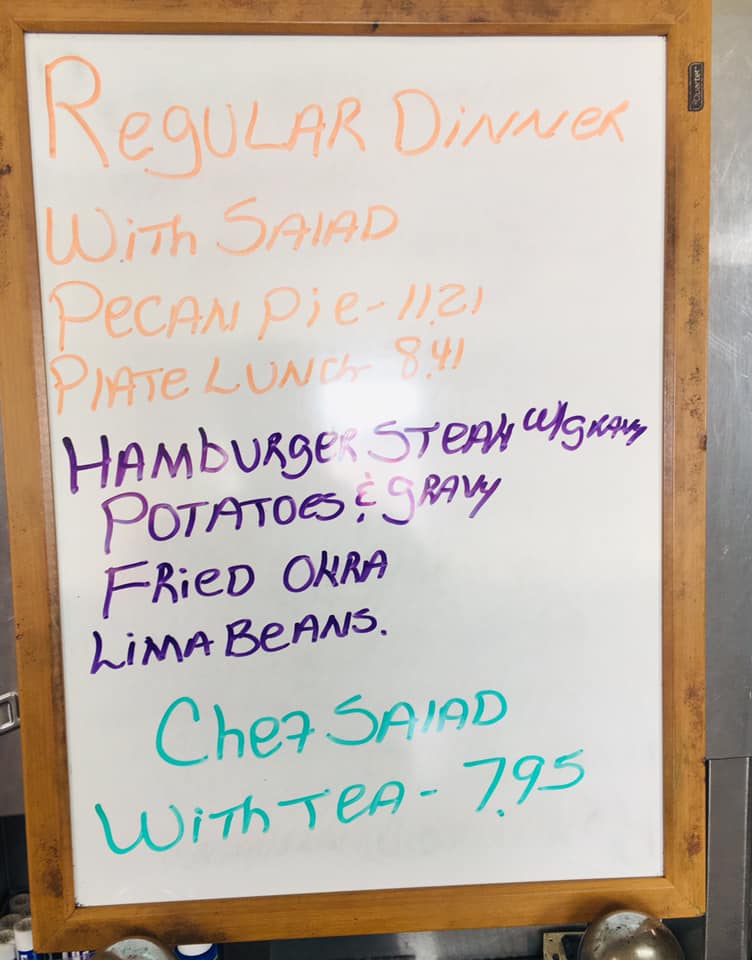 Quartet
Regular Dinner
With Salad
Pecan Pie - 11.21
Plate Lunch 8.41
Hamburger Steak w/gravy
Potatoes & gravy
Fried Okra
Lima Beans.
Chef Salad
With Tea - 7.95